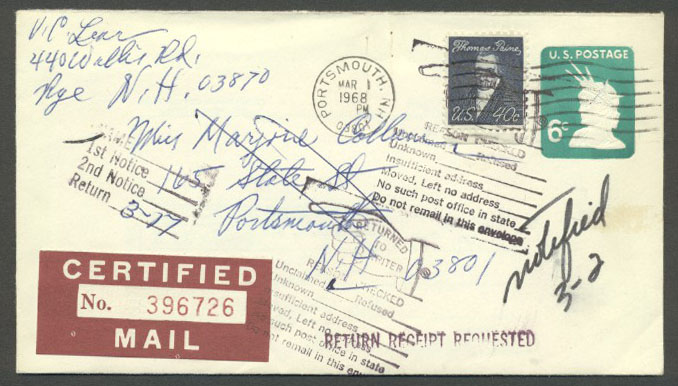 V.C. Lear
440 Wallis Rd.
Rye N.H. 03870
PORTSMOUTH, NH
MAR 1
PM
1968
Thomas Paine
U.S. 40c
U.S. POSTAGE
6c
Miss Marjorie
165 State St
Portsmouth
N.H. 03801
NAME
1st Notice
2nd Notice
Return
3-17
REASON CHECKED
Unclaimed Refused
Unknown
Insufficient address
Moved, Left no address
No such post office in state
Do not remail in this envelope
RETURNED
TO
WRITER
REASON CHECKED
Unclaimed Refused
Unknown
Insufficient address
Moved, Left no address
No such post office in state
Do not remail in this envelope
notified
3-2
CERTIFIED
No. 396726
MAIL
RETURN RECEIPT REQUESTED